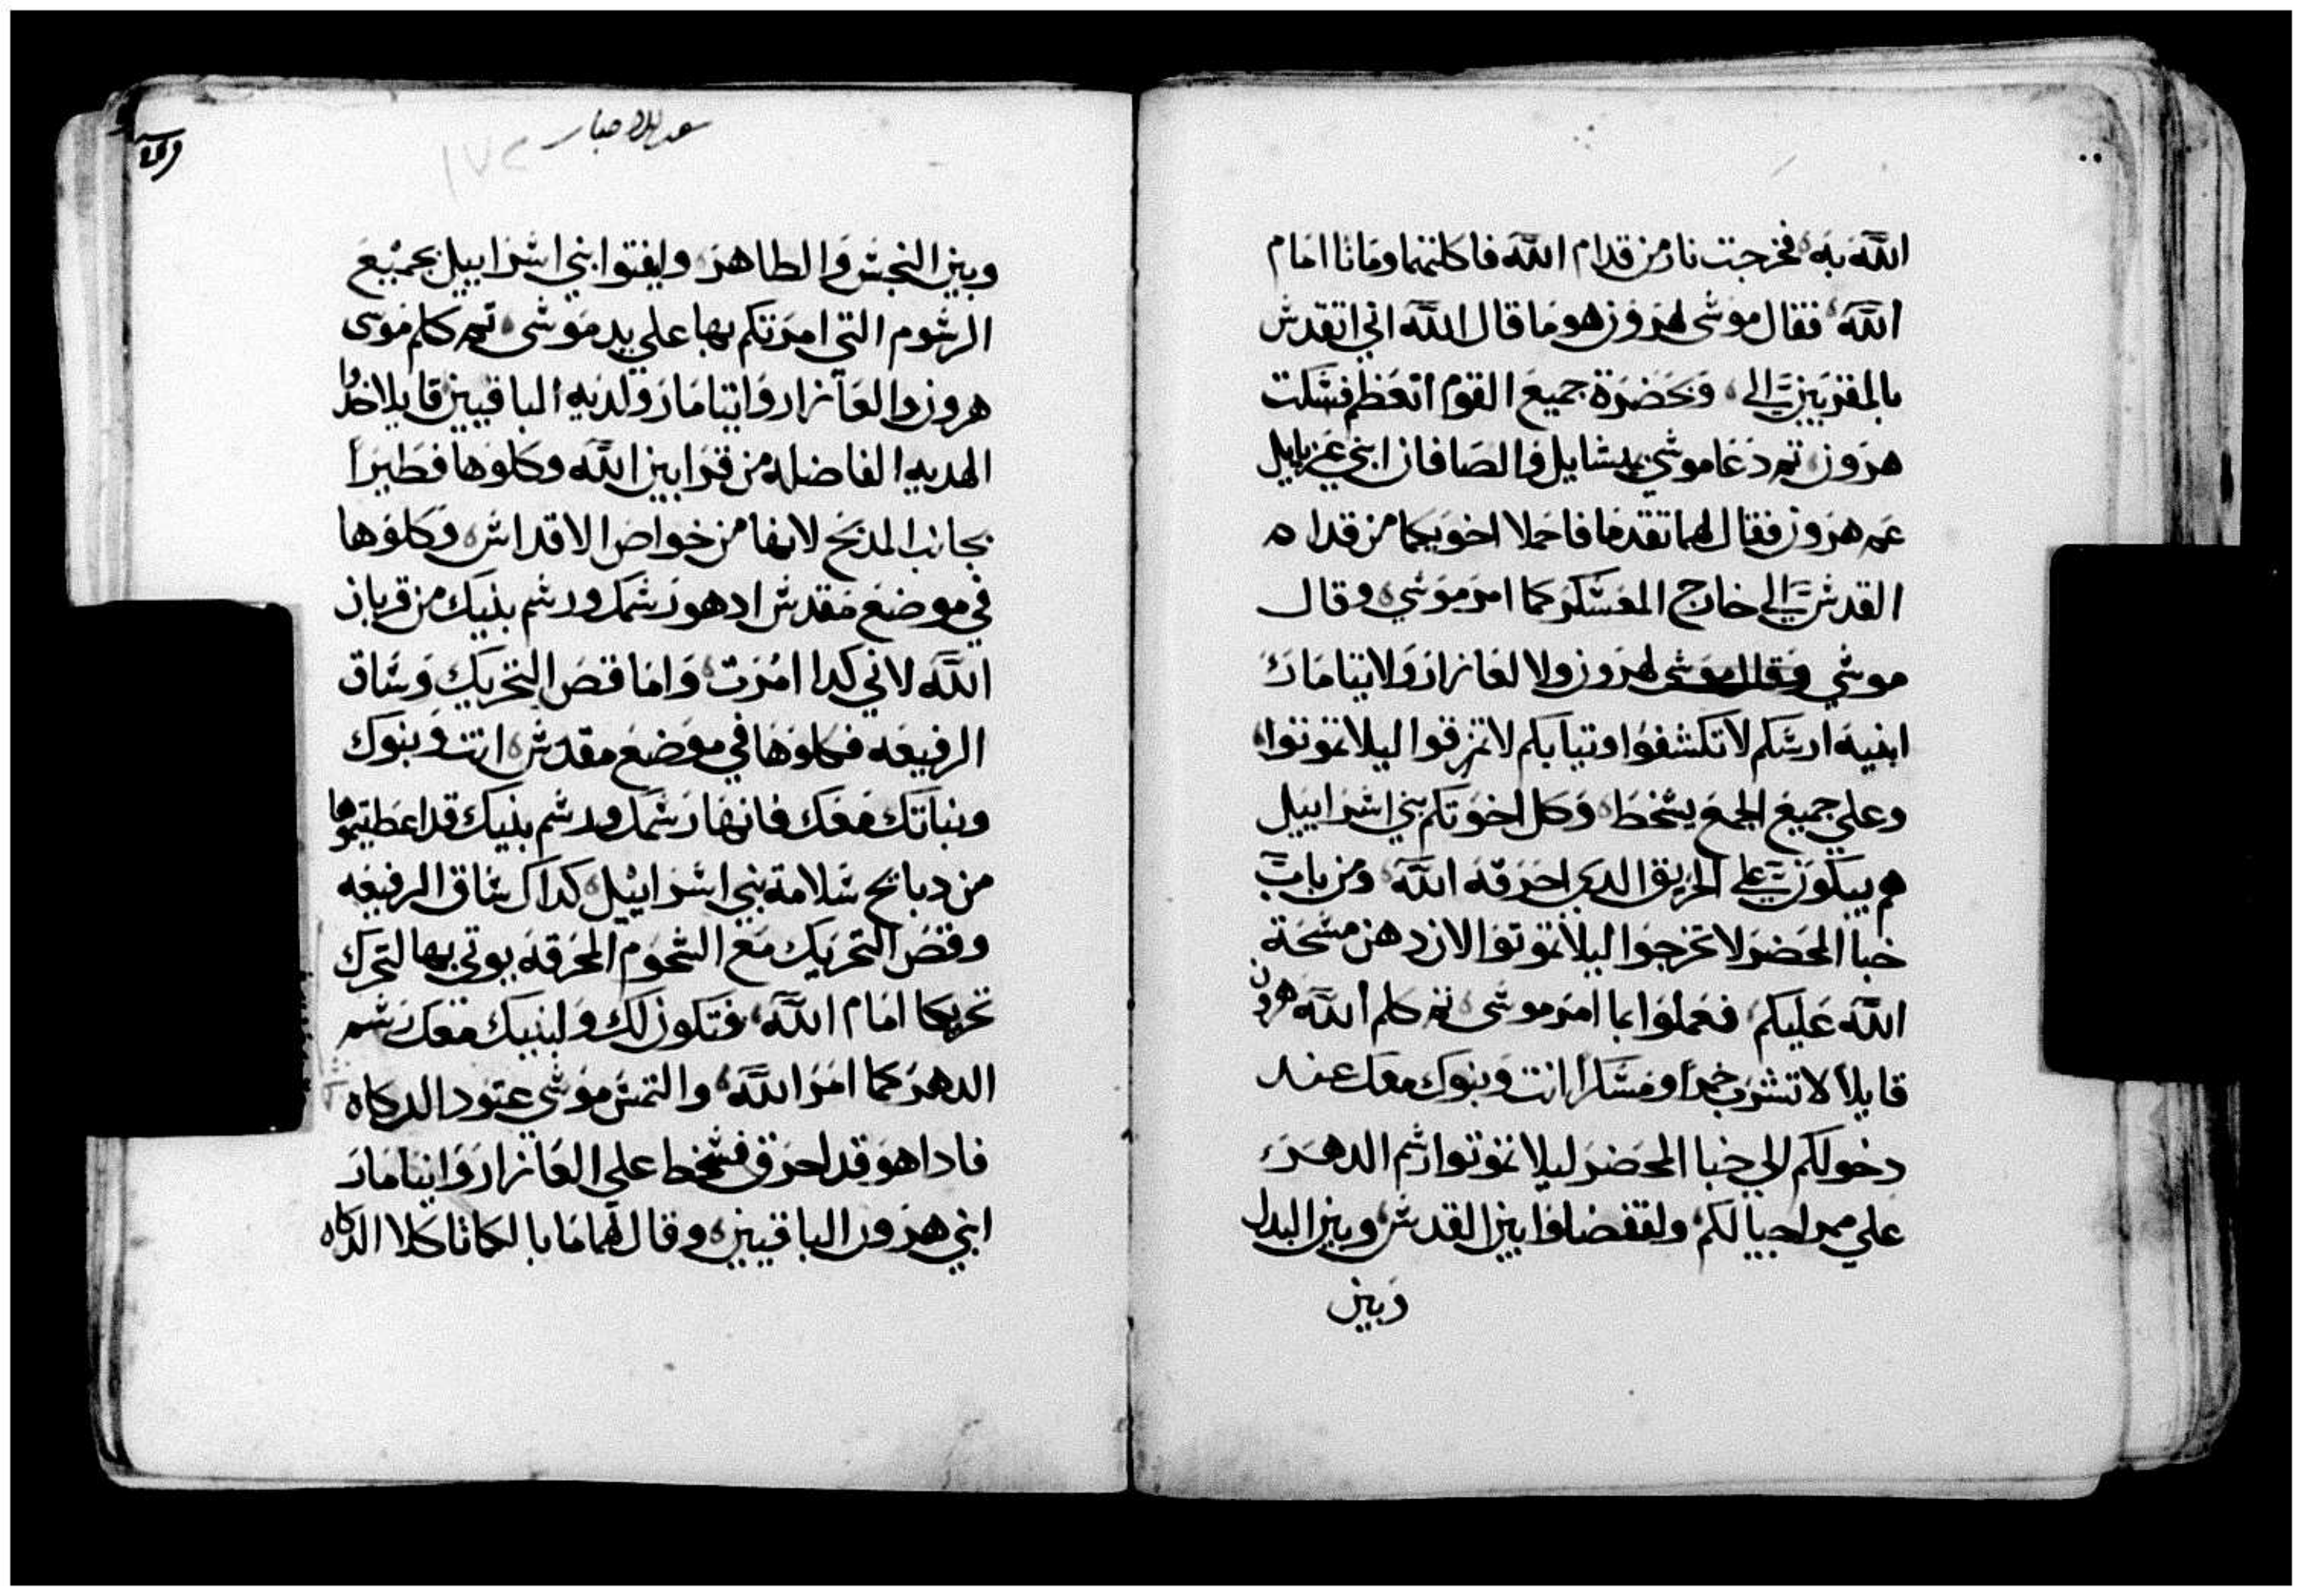 الله به فخرجت نار من قدام الله فاكلتهما وماتا امام
الله فقال موسى لهرون هو ما قال الله اني اتقدس
بالمقربين الى وبحضرة جميع القوم اتعظم فسكت
هرون ثم دعا موسي ميشايل والصافان ابني عزيايل
عم هرون فقال لهما تقدما فاحملا اخويكما من قدام
القدس الي خارج المعسكر كما امر موسي وقال
موسي وقال موسى لهرون ولالعازار ولايتامار
ابنيه ارسكم لا تكشفوا وتيابكم لا تمزقوا ليلا تموتوا
وعلي جميع الجمع يسخط وكل اخوتكم بني اسراييل
هم يبكون على الحريق الدي احرقه الله ومن باب
خبا المحضر لا تخرجوا ليلا تموتوا لان دهن مسحة
الله عليكم فعملوا بما امر موسى ثم كلم الله هرون
قايلا لا تشرب خمرا ومسكرا انت وبنوك معك عند
دخولكم الي خبا المحضر ليلا تموتوا رسم الدهر
علي ممر اجيالكم ولتفضلوا بين القدس وبين البدل
وبين
سفر الاحبار
١٧٢
وبين النجس والطاهر وليفتوا بني اسراييل بجميع
الرسوم التي امرتكم بها علي يد موسى ثم كلم موسى
هرون والعازار وايتامار ولديه الباقيين قايلا خدوا
الهديه الفاضله من قرابين الله وكلوها فطيرا
بجانب المدبح لانها من خواص الاقداس وكلوها
في موضع مقدس اد هو رسمك ورسم بنيك من قربان
الله لاني كدا امرت واما قص التحريك وساق
الرفيعه فكلوها في موضع مقدس انت وبنوك
وبناتك معك فانها رسمك ورسم بنيك قد اعطيتموها
من دبايح سلامة بني اسراييل كداك ساق الرفيعه
وقص التحريك مع الشحوم المحرقه يوتى بها لتحرك
تحريكا امام الله فتكون لك ولبنيك معك رسم
الدهر كما امر الله والتمس موسى عتود الدكاه
فادا هو قد احرق فسخط علي العازار وايتامار
ابني هرون الباقيين وقال لهما ما بالكما تاكلا الدكاه